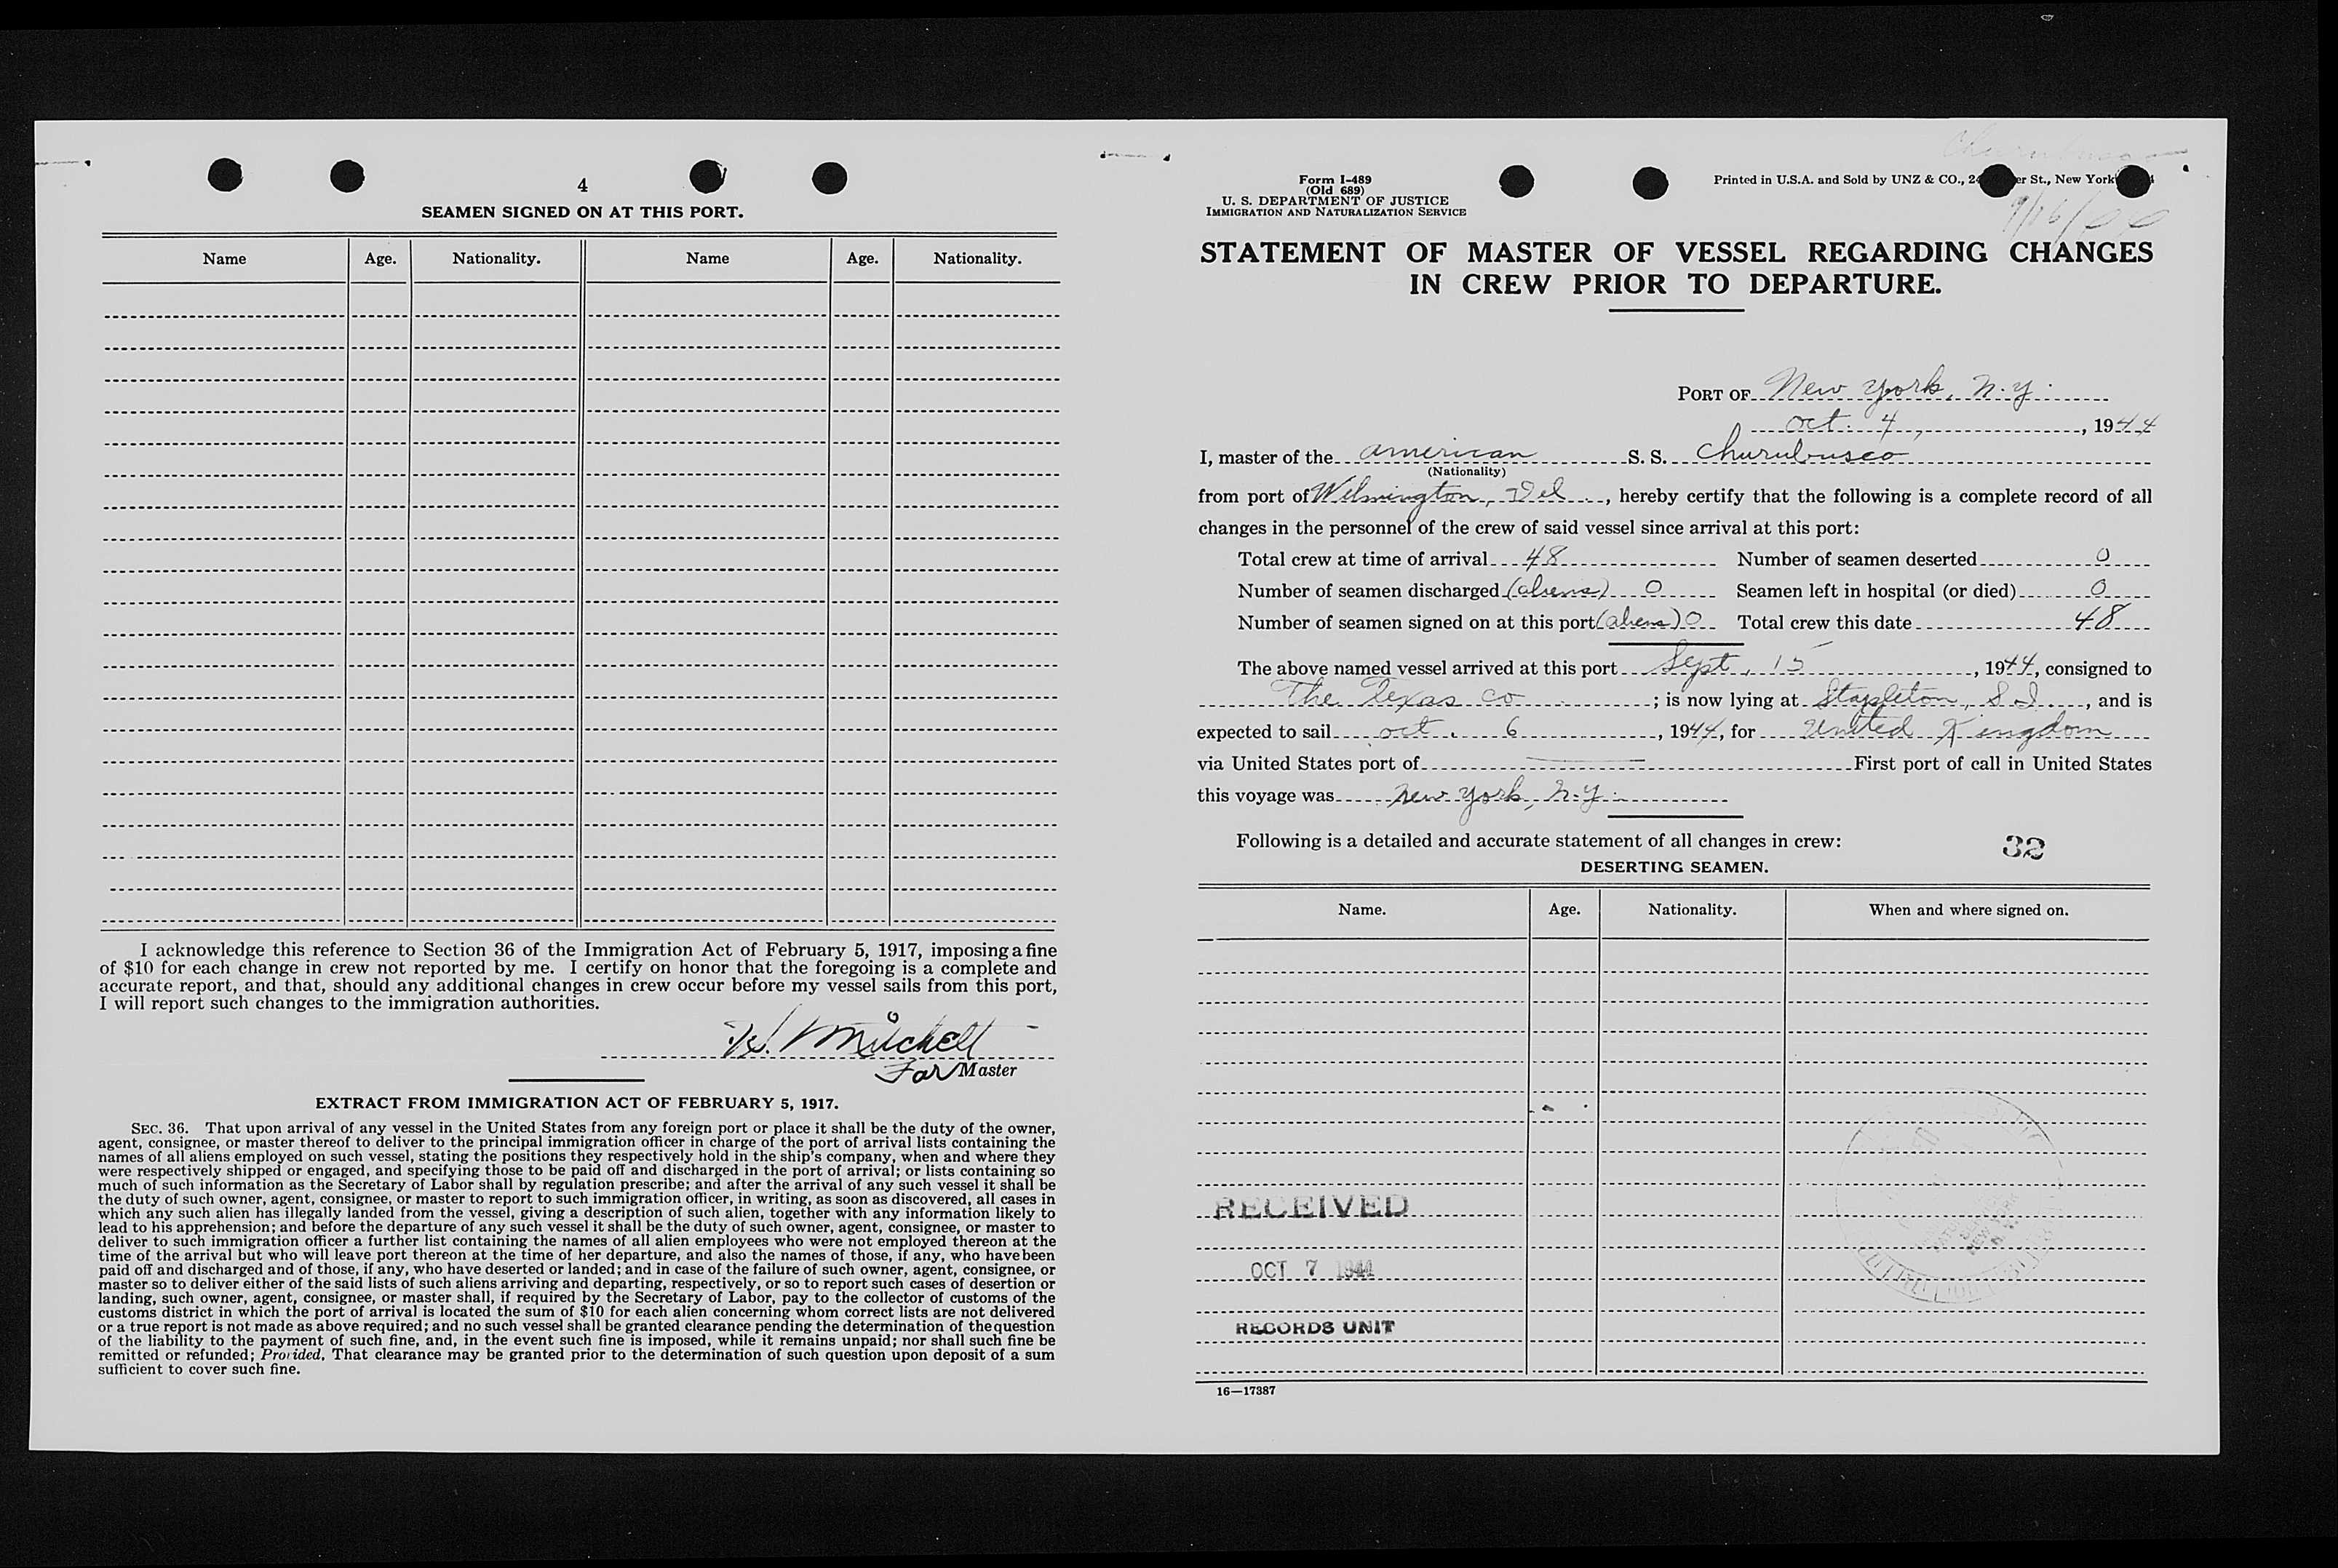 4
SEAMEN SIGNED ON AT THIS PORT.
Name Age. Nationality. Name Age. Nationality.
I acknowledge this reference to Section 36 of the Immigration Act of February 5, 1917, imposing a fine
of $10 for each change in crew not reported by me. I certify on honor that the foregoing is a complete and
accurate report, and that, should any additional changes in crew occur before my vessel sails from this port,
I will report such changes to the immigration authorities.
Mitchell
For Master
EXTRACT FROM IMMIGRATION ACT OF FEBRUARY 5, 1917.
SEC. 36. That upon arrival of any vessel in the United States from any foreign port or place it shall be the duty of the owner,
agent, consignee, or master thereof to deliver to the principal immigration officer in charge of the port of arrival lists containing the
names of all aliens employed on such vessel, stating the positions they respectively hold in the ship's company, when and where they
were respectively shipped or engaged, and specifying those to be paid off and discharged in the port of arrival; or lists containing so
much of such information as the Secretary of Labor shall by regulation prescribe; and after the arrival of any such vessel it shall be
the duty of such owner, agent, consignee, or master to report to such immigration officer, in writing, as soon as discovered, all cases in
which any such alien has illegally landed from the vessel, giving a description of such alien, together with any information likely to
lead to his apprehension; and before the departure of any such vessel it shall be the duty of such owner, agent, consignee, or master to
deliver to such immigration officer a further list containing the names of all alien employees who were not employed thereon at the
time of the arrival but who will leave port thereon at the time of her departure, and also the names of those, if any, who have been
paid off and discharged and of those, if any, who have deserted or landed; and in case of the failure of such owner, agent, consignee, or
master so to deliver either of the said lists of such aliens arriving and departing, respectively, or so to report such cases of desertion or
landing, such owner, agent, consignee, or master shall, if required by the Secretary of Labor, pay to the collector of customs of the
customs district in which the port of arrival is located the sum of $10 for each alien concerning whom correct lists are not delivered
or a true report is not made as above required; and no such vessel shall be granted clearance pending the determination of the question
of the liability to the payment of such fine, and, in the event such fine is imposed, while it remains unpaid; nor shall such fine be
remitted or refunded; Provided, That clearance may be granted prior to the determination of such question upon deposit of a sum
sufficient to cover such fine.
Form I-489
(Old 689)
U. S. DEPARTMENT OF JUSTICE
IMMIGRATION AND NATURALIZATION SERVICE
Printed in U.S.A. and Sold by UNZ & CO., St., New York
STATEMENT OF MASTER OF VESSEL REGARDING CHANGES
IN CREW PRIOR TO DEPARTURE.
PORT OF New York, N.Y.
Oct. 4, 1944
I, master of the American S. S. Churubusco
(Nationality)
from port of Wilmington, Del., hereby certify that the following is a complete record of all
changes in the personnel of the crew of said vessel since arrival at this port:
Total crew at time of arrival 48 Number of seamen deserted 0
Number of seamen discharged (aliens) 0 Seamen left in hospital (or died) 0
Number of seamen signed on at this port (aliens) 0 Total crew this date 48
The above named vessel arrived at this port Sept. 15, 1944, consigned to
The Texas Co; is now lying at Stapleton, S.I., and is
expected to sail Oct. 6, 1944, for United Kingdom
via United States port of — First port of call in United States
this voyage was New York, N.Y.
Following is a detailed and accurate statement of all changes in crew:
32
DESERTING SEAMEN.
Name. Age. Nationality. When and where signed on.
RECEIVED
OCT 7 1944
RECORDS UNIT
16—17387